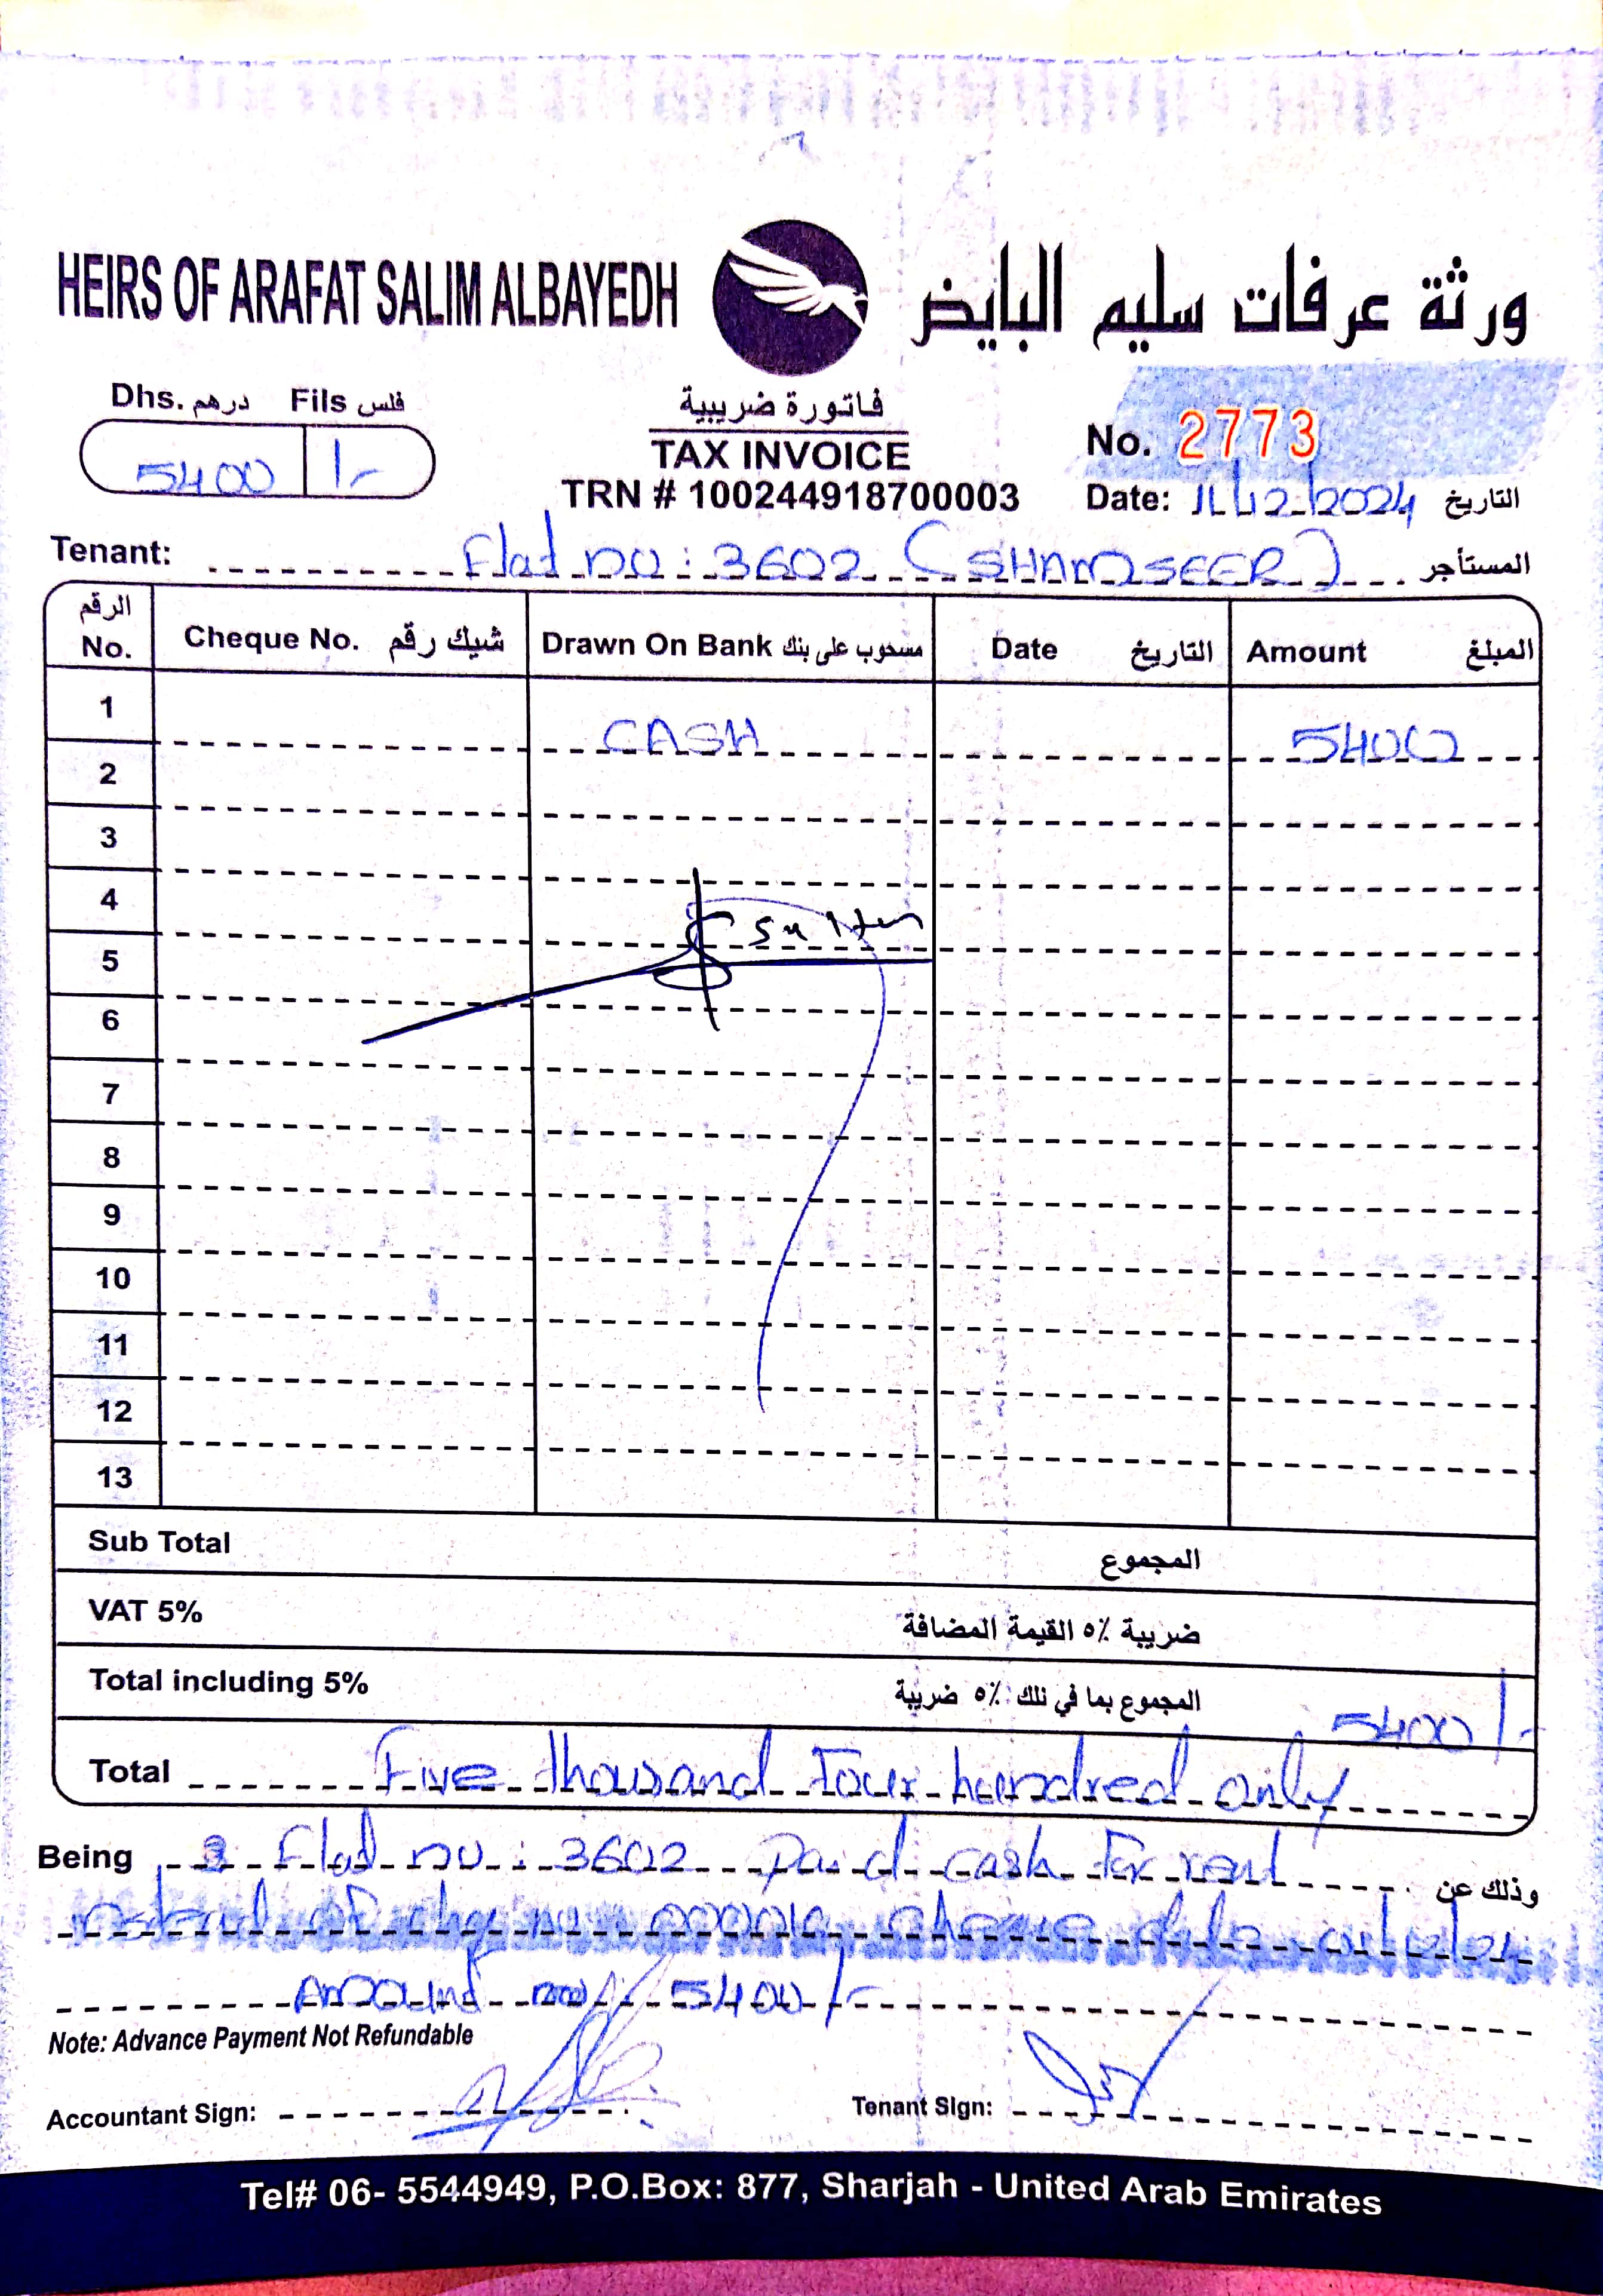 HEIRS OF ARAFAT SALIM ALBAYEDH ورثة عرفات سليم البايض
Dhs. درهم Fils فلس
5400 /-
فاتورة ضريبية
TAX INVOICE
TRN # 100244918700003
No. 2773
Date: 12/2024 التاريخ
Tenant: Flat no: 3602 (SHAMSEER) المستأجر
الرقم No. Cheque No. شيك رقم Drawn On Bank مسحوب على بنك Date التاريخ Amount المبلغ
1 CASH 5400
2
3
4
5
6
7
8
9
10
11
12
13
Sub Total المجموع
VAT 5% ضريبة ٥٪ القيمة المضافة
Total including 5% المجموع بما في ذلك ٥٪ ضريبة 5400/-
Total Five thousand Four hundred only
Being Flat no: 3602 paid cash for rent وذلك عن
of cheq no cheque date
Amount 5400/-
Note: Advance Payment Not Refundable
Accountant Sign: Tenant Sign:
Tel# 06- 5544949, P.O.Box: 877, Sharjah - United Arab Emirates